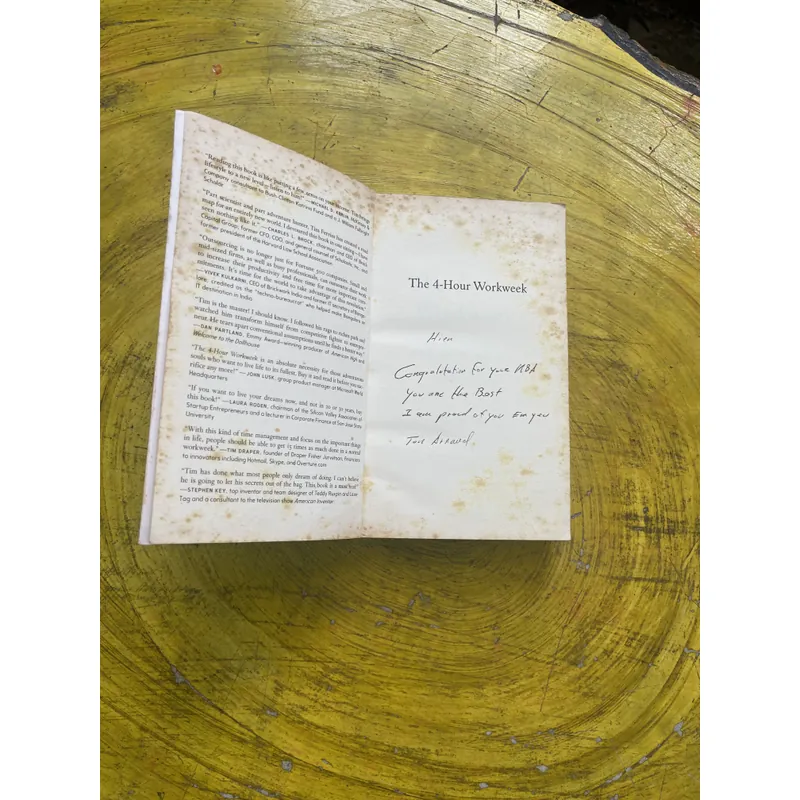 "Reading this book is like putting a few zeros on your income. Tim brings
lifestyle to a new level—listen to him!" —MICHAEL D. KERLIN, McKinsey &
Company consultant to Bush-Clinton Katrina Fund and a J. William Fulbright
Scholar
"Part scientist and part adventure hunter, Tim Ferriss has created a road
map for an entirely new world. I devoured this book in one sitting—I have
seen nothing like it." —CHARLES L. BROCK, chairman and CEO of Brock
Capital Group; former CFO, COO, and general counsel of Scholastic, Inc.; and
former president of the Harvard Law School Association
"Outsourcing is no longer just for Fortune 500 companies. Small and
mid-sized firms, as well as busy professionals, can outsource their work
to increase their productivity and free time for more important com-
mitments. It's time for the world to take advantage of this revolution."
—VIVEK KULKARNI, CEO of Brickwork India and former IT secretary of Banga-
lore; credited as the "techno-bureaucrat" who helped make Bangalore an
IT destination in India
"Tim is the master! I should know. I followed his rags to riches path and
watched him transform himself from competitive fighter to entrepre-
neur. He tears apart conventional assumptions until he finds a better way."
—DAN PARTLAND, Emmy Award–winning producer of American High and
Welcome to the Dollhouse
"The 4-Hour Workweek is an absolute necessity for those adventurous
souls who want to live life to its fullest. Buy it and read it before you sac-
rifice any more!" —JOHN LUSK, group product manager at Microsoft World
Headquarters
"If you want to live your dreams now, and not in 20 or 30 years, buy
this book!" —LAURA RODEN, chairman of the Silicon Valley Association of
Startup Entrepreneurs and a lecturer in Corporate Finance at San Jose State
University
"With this kind of time management and focus on the important things
in life, people should be able to get 15 times as much done in a normal
workweek." —TIM DRAPER, founder of Draper Fisher Jurvetson, financiers
to innovators including Hotmail, Skype, and Overture.com
"Tim has done what most people only dream of doing. I can't believe
he is going to let his secrets out of the bag. This book is a must read!"
—STEPHEN KEY, top inventor and team designer of Teddy Ruxpin and Lazer
Tag and a consultant to the television show American Inventor
The 4-Hour Workweek
Hien
Congratulation for your MBA
You are the Best
I am proud of you